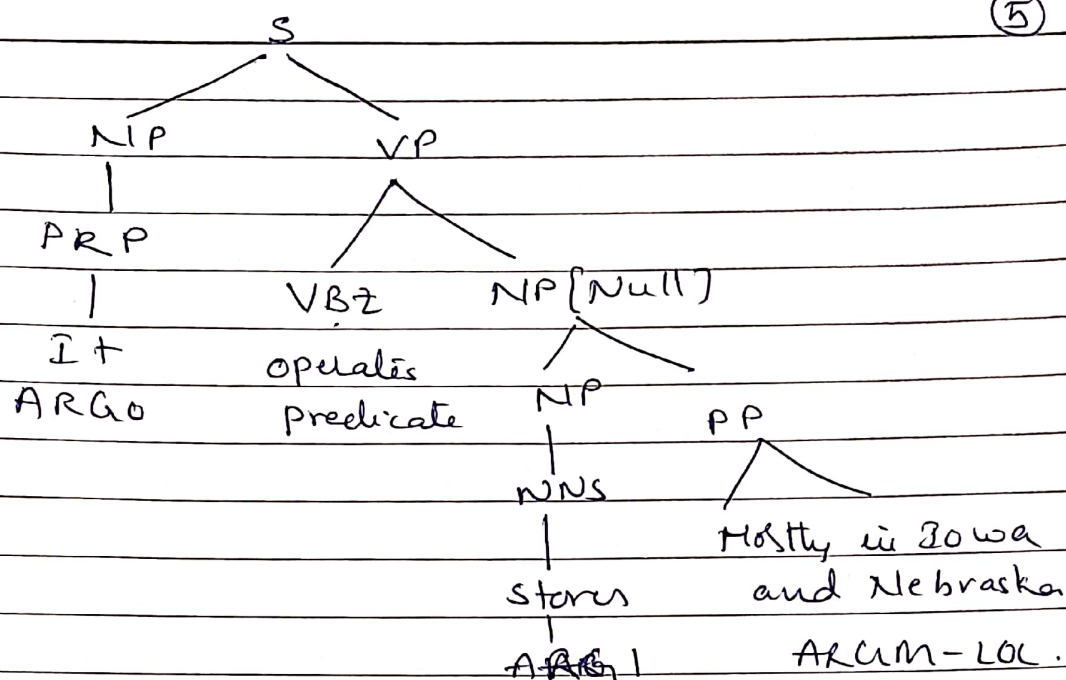 5
S
NP VP
PRP
VBZ NP [Null]
It operates NP
ARG0 predicate PP
NNS
Mostly in Iowa
Stores and Nebraska
ARG1 ARGM-LOC.